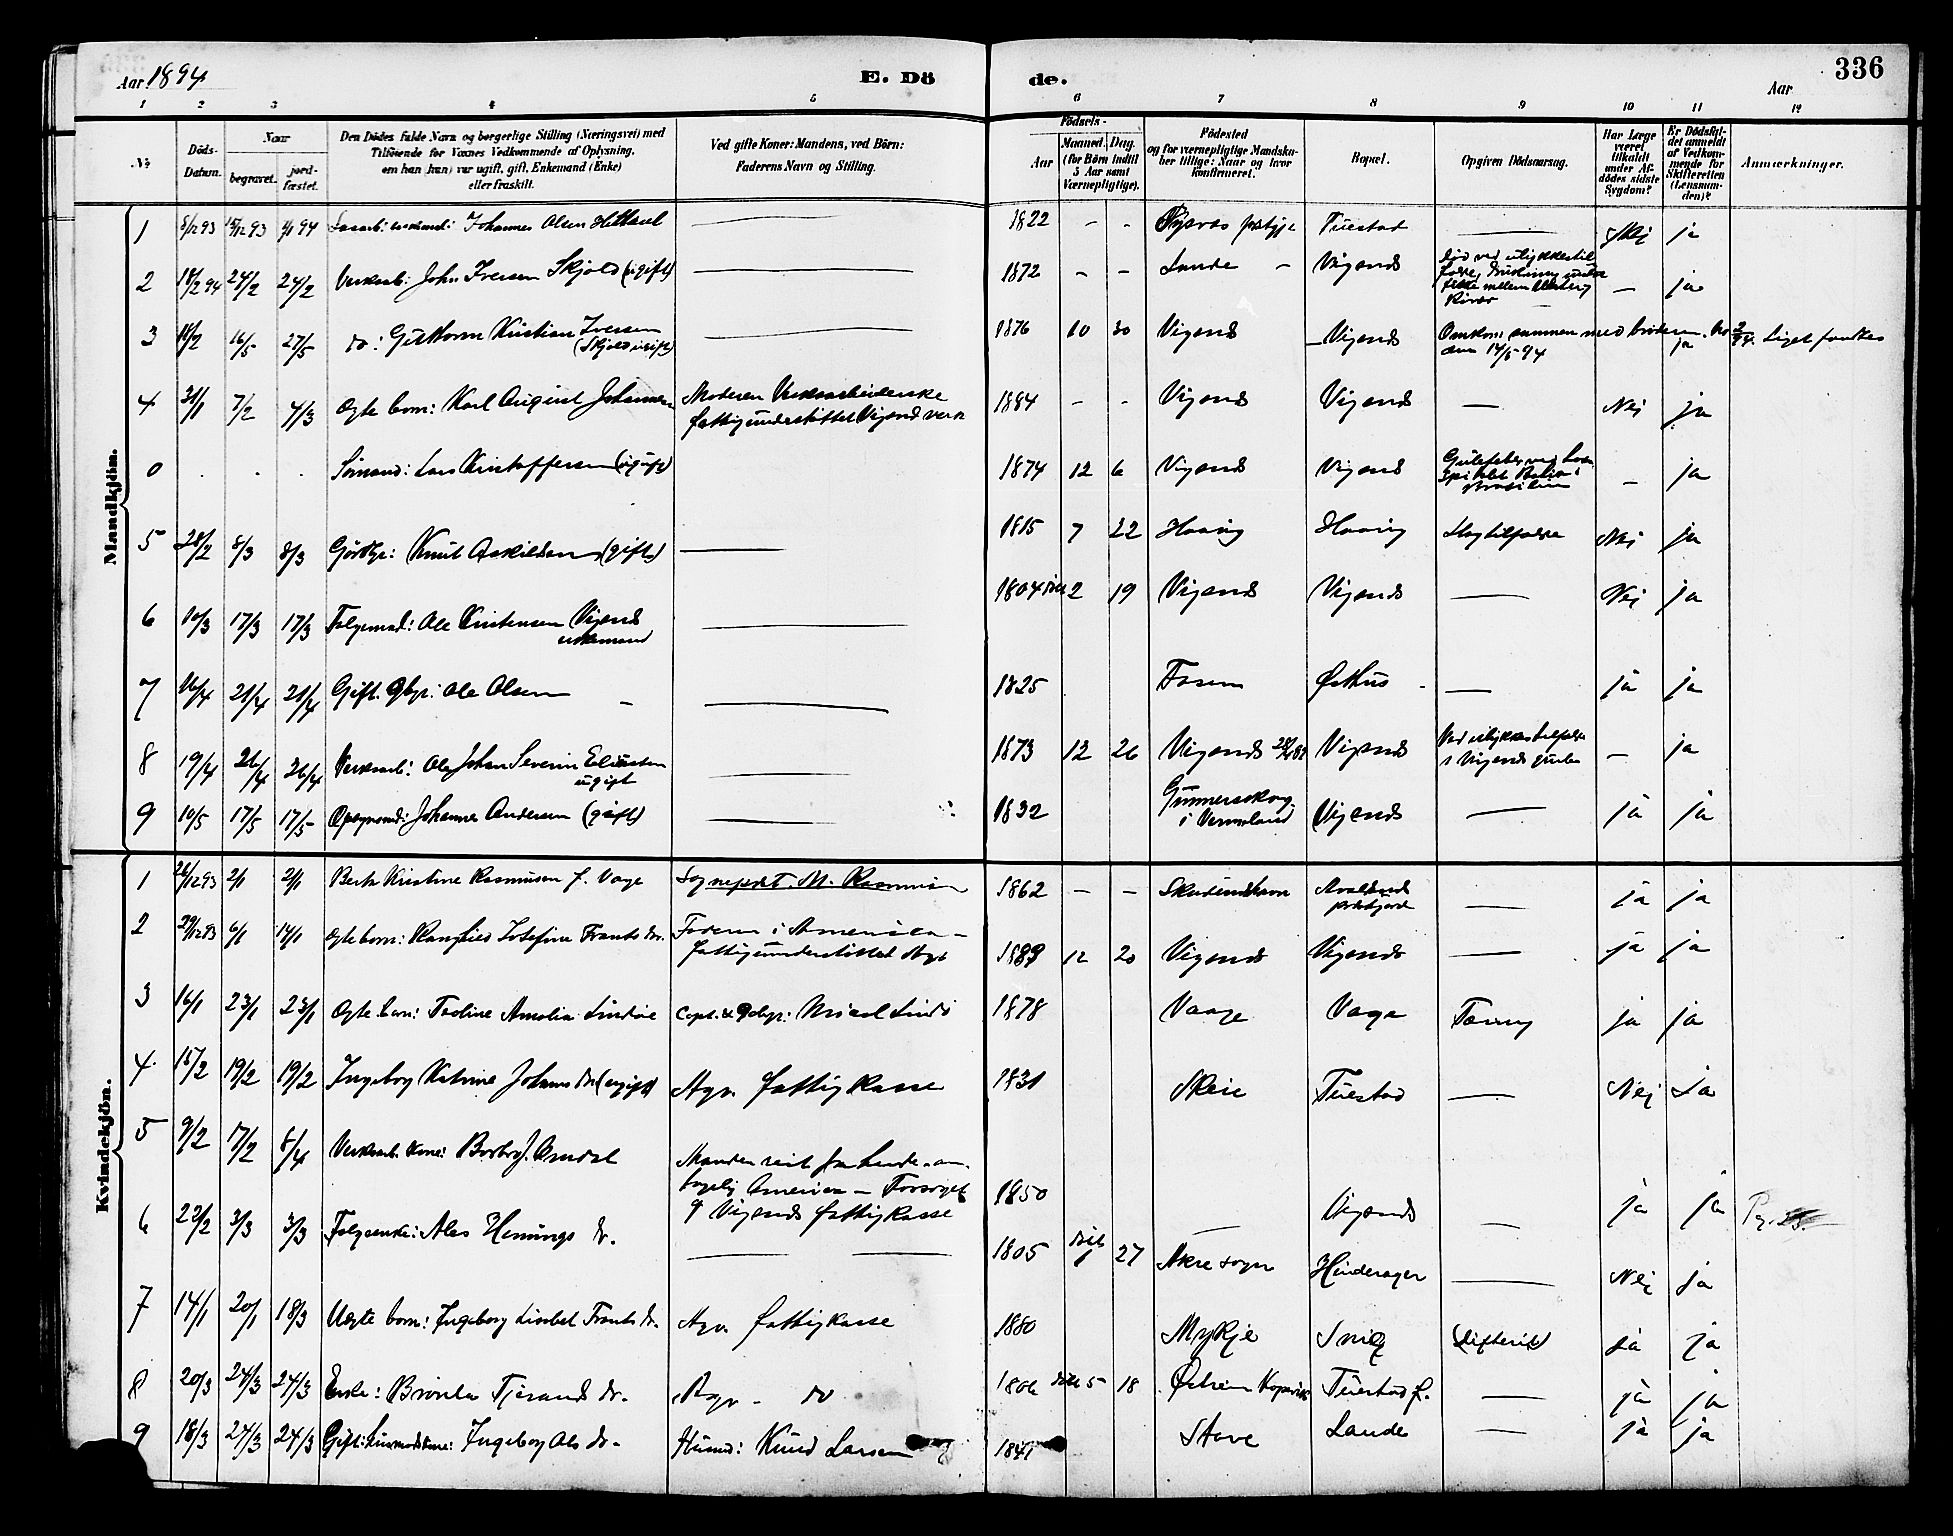 336
Aar 1894
E. Dö
de.
Aar
1 2 3 4 5 6 7 8 9 10 11 12
No
Döds-
Datum.
Naar
begravet.
jord-
fæstet.
Den Dödes fulde Navn og borgerlige Stilling (Næringsvei) med
Tilföiende for Voxnes Vedkommende af Oplysning,
om han (hun) var ugift, gift, Enkemand (Enke)
eller fraskilt.
Ved gifte Koner: Mandens, ved Börn:
Faderens Navn og Stilling.
Födsels-
Aar
Maaned. Dag.
(for Börn indtil
5 Aar samt
Værnepligtige).
Födested
og for værnepligtige Mandskaber
tillige: Naar og hvor
konfirmeret.
Bopæl.
Opgiven Dödsaarsag.
Har Læge
været
tilkaldt
under Afdödes
sidste
Sygdom?
Er Dödsfaldet
anmeldt
af Vedkommende
for
Skifteretten
(Lensmanden)?
Anmærkninger.
Mandkjön.
1 8/12 93 15/12 93 94 Johannes Olsen 1822 - - Tuestad Nej ja
2 18/2 94 24/2 24/2 Verksarb: John Iversen Skjold (ugift) 1872 - - Lande - Vigsnes - ja
3 18/2 16/5 27/5 do: Guttorm Kristian Iversen
(Skjold ugift) 1876 10 30 Vigsnes Vigsnes Omkom sammen med broderen ja Liget fandtes
den 14/5 94
4 31/1 7/2 4/3 Ægte barn: Karl August Johannesen Moderen Verksarbeiderske
fattigunderstöttet Vigsnes verk 1884 - - Vigsnes Vigsnes Nej ja
0 Sömand: Lars Kristoffersen (ugift) 1874 12 6 Vigsnes Vigsnes - ja
5 28/2 8/3 8/3 Gårdbr: Knut Askildsen (gift) 1815 7 22 Haavig Haavig Slagtilfælde Nej ja
6 10/3 17/3 17/3 Folgemand: Ole Kristensen Vigsnes
enkemand 1804 2 19 Vigsnes Vigsnes Nej ja
7 16/4 21/4 21/4 Gift. Gbr: Ole Olsen 1825 Fosen Østhus ja ja
8 19/4 26/4 26/4 Verksarb: Ole Johan Severin
ugift 1873 12 26 Vigsnes Vigsnes Ved ulykkestilfælde
i Vigsnes grube - ja
9 10/5 17/5 17/5 Opsynsmd: Johannes Andersen (gift) 1832 Gunnarsskog
i Vermeland Vigsnes ja ja
Kvindekjön.
1 26/12 93 2/1 2/1 Berta Kristine Rasmusen f. Vage Sogneprest M. Rasmusen 1862 - - Skudeneshavn Avaldsnes
prestegård ja ja
2 29/12 93 6/1 14/1 Ægte barn: Ranghild Josefine Frants dr. Faderen i Amerika -
fattigunderstöttet 1889 12 20 Vigsnes Vigsnes ja ja
3 16/1 23/1 23/1 Ægte barn: Amalia Lindöe Capt. & Gbr: 1878 Vaage Vage Tæring ja ja
4 15/2 19/2 19/2 Ingeborg Katrine Johans dr (ugift) Agv. fattigkasse 1831 Skeie Tuestad Nej Ja
5 9/2 17/2 8/4 Verksarb. kone: Manden reist fra hende
Amerika - Forsörget
af Vigsnes fattigkasse 1850 Vigsnes ja ja
6 22/2 3/3 3/3 Folgeenke: Ales Hemings dr. 1805 1 27 Akre sogn Hinderager Nej ja
7 14/1 20/1 18/3 Uægte barn: Ingeborg Lisabet Frants dr. Agv. fattigkasse 1880 Mykje Snig (Difterit) ja ja
8 20/3 24/3 24/3 Enke: Brönla Tjerands dr. Agv. do 1806 5 18 Östrem Kopervik Tuestad ja ja
9 18/3 24/3 24/3 Gift: Husmandskone: Ingeborg Ols dr. Husmd: Knud Larsen 1841 Stave Lande ja ja